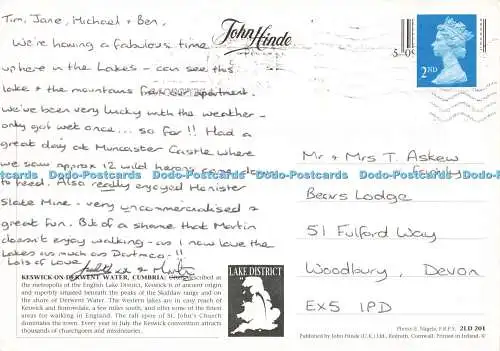 Tim, Jane, Michael & Ben,
We're having a fabulous time
up here in the Lakes – can see this
lake & the mountains from our apartment.
We've been very lucky with the weather –
only got wet once... so far!! Had a
great day at Muncaster Castle where
we saw approx 12 wild herons come down
to feed. Also really enjoyed Honister
Slate Mine – very uncommercialised &
great fun. Bit of a shame that Martin
doesn't enjoy walking – as I now love the
Lakes as much as Dartmoor!!
Lots of love
& Martin
KESWICK-ON-DERWENT WATER, CUMBRIA: Often described as
the metropolis of the English Lake District, Keswick is of ancient origin
and superbly situated beneath the peaks of the Skiddaw range and on
the shore of Derwent Water. The western lakes are in easy reach of
Keswick and Borrowdale, a few miles south, and offer some of the finest
areas for walking in England. The tall spire of St. John's Church
dominates the town. Every year in July the Keswick convention attracts
thousands of churchgoers and missionaries.
LAKE DISTRICT
John Hinde
2ND
Mr & Mrs T. Askew
& family
Bears Lodge
51 Fulford Way
Woodbury, Devon
EX5 1PD
Photo: E. Nägele, F.R.P.S. 2LD 204
Published by John Hinde (U.K.) Ltd., Redruth, Cornwall. Printed in Ireland. ©
Dodo-Postcards Dodo-Postcards Dodo-Postcards Dodo-Postcards Dodo-Postcards